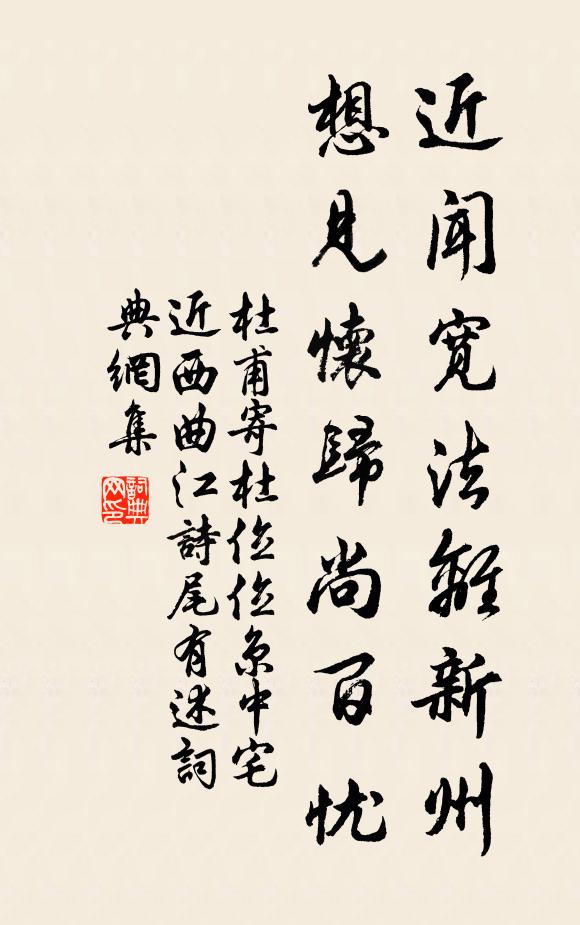 近聞寬法離新州
想見懷歸尚百忧
杜甫寄杜位位京中宅
近西曲江詩尾有述詞
典網集
詞典网印